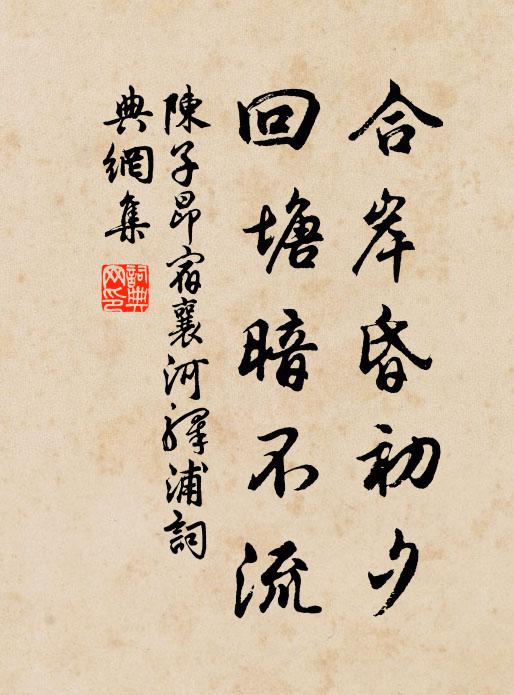 合岸昏初夕
回塘暗不流
陳子昂宿襄河驛浦詞
典網集
詞典網印